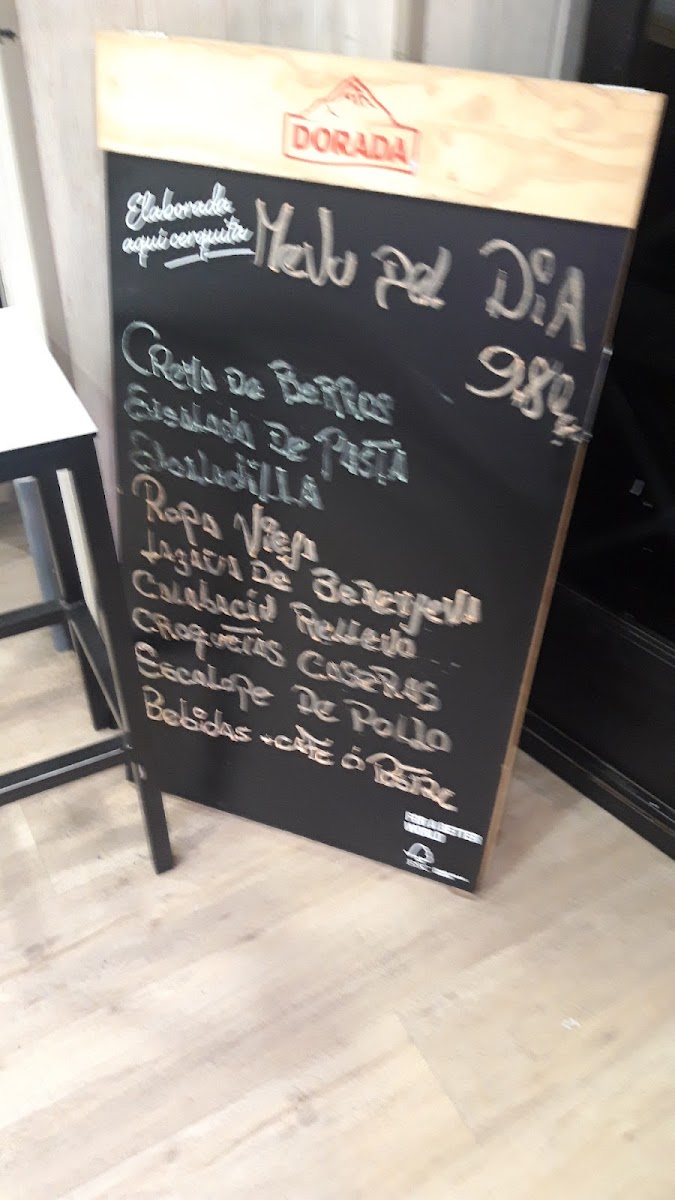 DORADA
Elaborada
aquí cerquita
MENU DEL DiA
9,80
CREMA DE BERROS
ENSALADA DE PASTA
ROPA VIEJA
LAZAÑA DE BERENJENA
CALABACIN RELLENO
CROQUETAS CASERAS
ESCALOPE DE POLLO
BEBIDAS + CAFÉ ó POSTRE
FOR A BETTER
WORLD